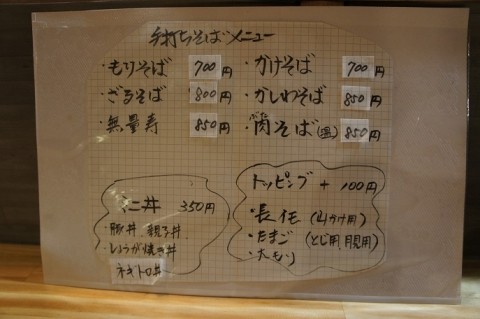 手打ちそばメニュー
・もりそば 700円
・ざるそば 800円
・無量寿 850円
・かけそば 700円
・かしわそば 850円
・肉そば(温) 850円
ミニ丼 350円
・豚丼、親子丼、
・しょうが焼き丼
ネギトロ丼
トッピング + 100円
・長芋 (山かけ用)
・たまご (とじ用、月見用)
・大もり